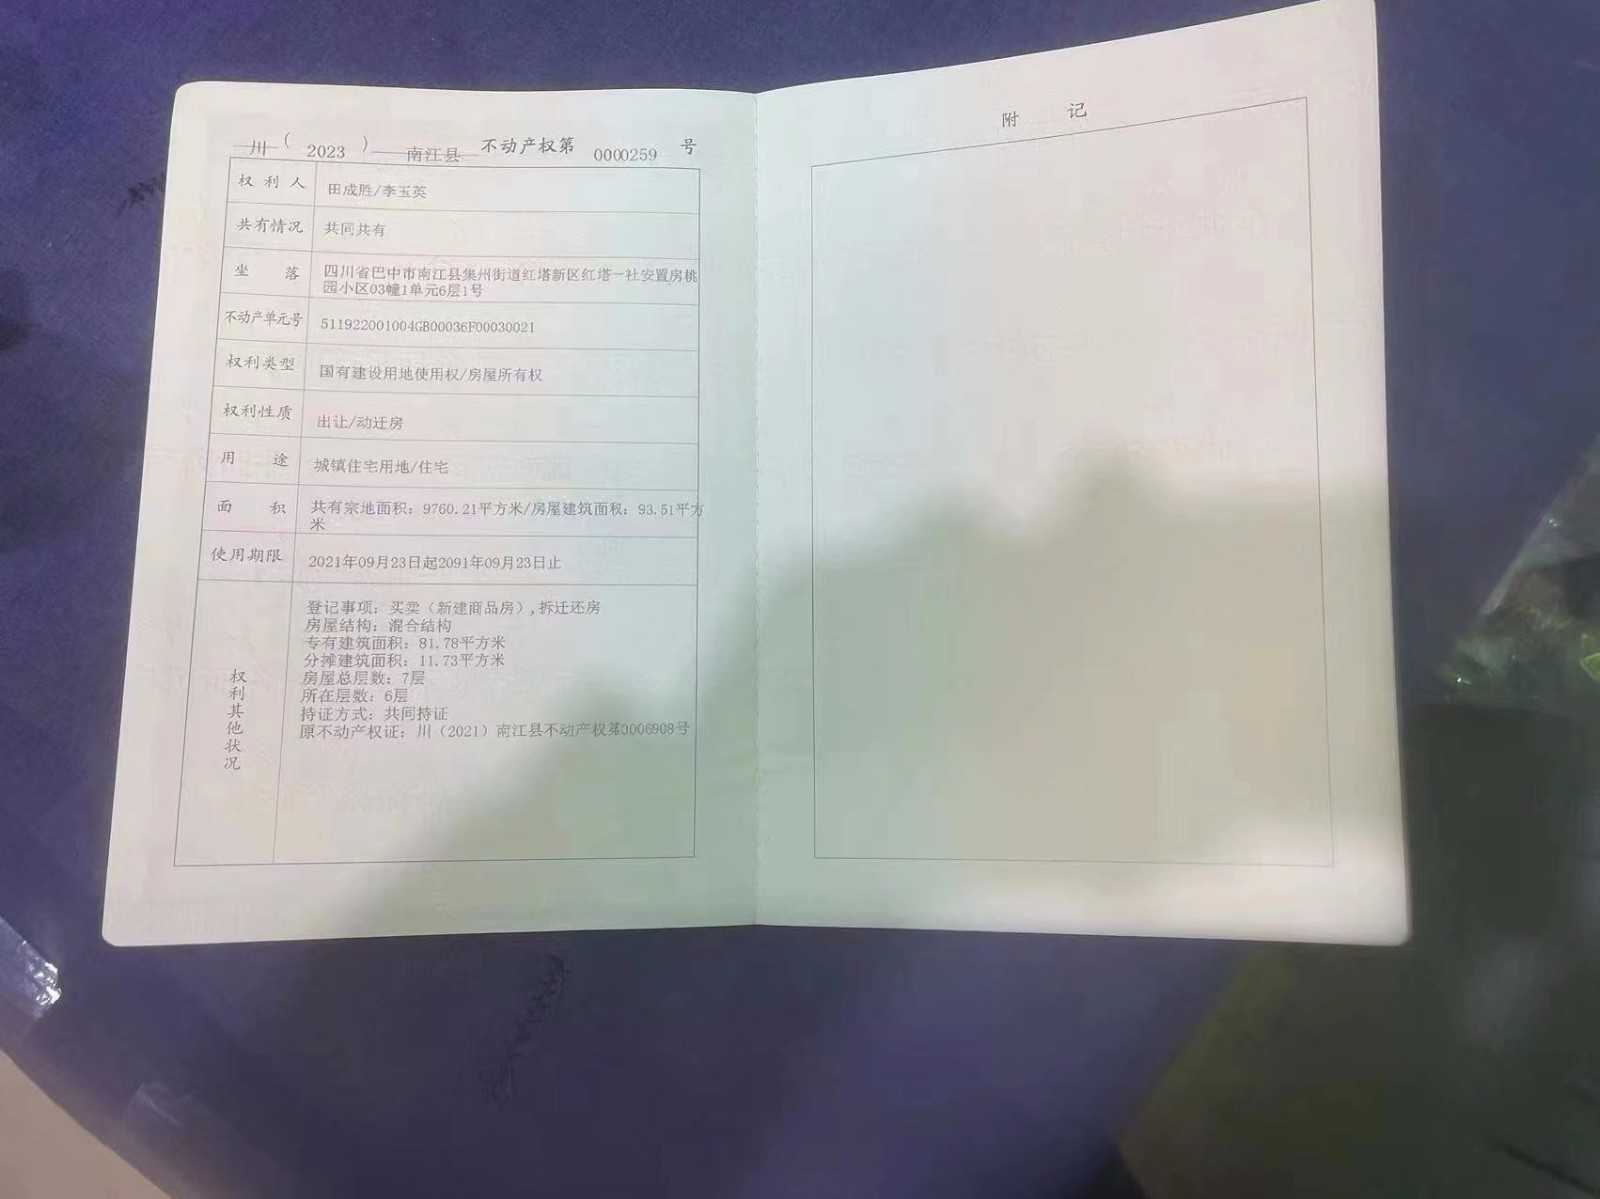 川（2023）南江县不动产权第0000259号
权利人 田成胜/李玉英
共有情况 共同共有
坐落 四川省巴中市南江县集州街道红塔新区红塔一社安置房桃
园小区03幢1单元6层1号
不动产单元号 511922001004GB00036F00030021
权利类型 国有建设用地使用权/房屋所有权
权利性质 出让/动迁房
用途 城镇住宅用地/住宅
面积 共有宗地面积：9760.21平方米/房屋建筑面积：93.51平方
米
使用期限 2021年09月23日起2091年09月23日止
权利其他状况
登记事项：买卖（新建商品房）,拆迁还房
房屋结构：混合结构
专有建筑面积：81.78平方米
分摊建筑面积：11.73平方米
房屋总层数：7层
所在层数：6层
持证方式：共同持证
原不动产权证：川（2021）南江县不动产权第0006908号
附记